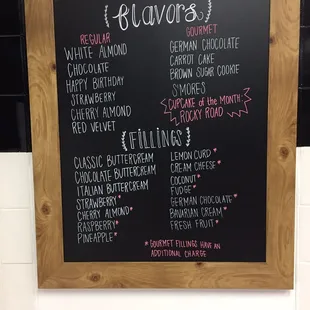 Flavors
REGULAR
WHITE ALMOND
CHOCOLATE
HAPPY BIRTHDAY
STRAWBERRY
CHERRY ALMOND
RED VELVET
GOURMET
GERMAN CHOCOLATE
CARROT CAKE
BROWN SUGAR COOKIE
S'MORES
CUPCAKE of the MONTH:
ROCKY ROAD
{FILLINGS}
CLASSIC BUTTERCREAM
CHOCOLATE BUTTERCREAM
ITALIAN BUTTERCREAM
STRAWBERRY*
CHERRY ALMOND*
RASPBERRY*
PINEAPPLE*
LEMON CURD*
CREAM CHEESE*
COCONUT*
FUDGE*
GERMAN CHOCOLATE*
BAVARIAN CREAM*
FRESH FRUIT*
*GOURMET FILLINGS HAVE AN
ADDITIONAL CHARGE